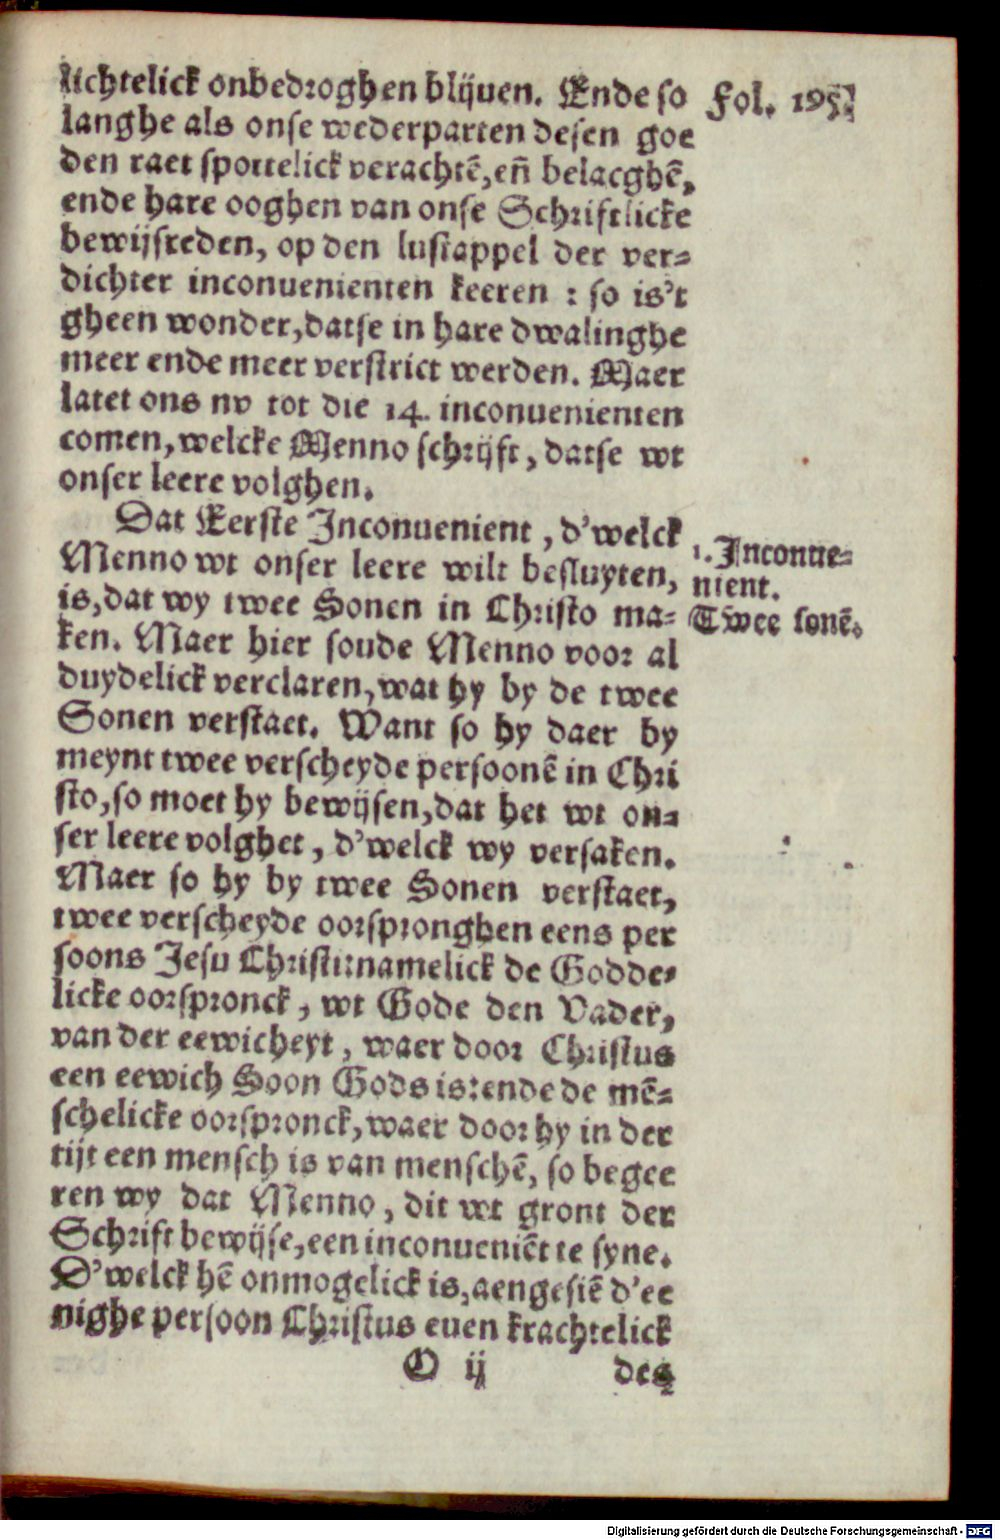 lichtelick onbedroghen blijuen. Ende so
Fol. 195.
langhe als onse wederparten desen goe
den raet spottelick verachtē, eñ belacghē,
ende hare ooghen van onse Schriftlicke
bewijsreden, op den lustappel der ver-
dichter inconuenienten keeren : so is't
gheen wonder, datse in hare dwalinghe
meer ende meer verstrict werden. Maer
latet ons nv tot die 14. inconuenienten
comen, welcke Menno schrijft, datse wt
onser leere volghen.
Dat Eerste Inconuenient, d'welck
Menno wt onser leere wilt besluyten,
is, dat wy twee Sonen in Christo ma-
ken. Maer hier soude Menno voor al
duydelick verclaren, wat hy by de twee
Sonen verstaet. Want so hy daer by
meynt twee verscheyde persoonē in Chri
sto, so moet hy bewijsen, dat het wt on-
ser leere volghet, d'welck wy versaken.
Maer so hy by twee Sonen verstaet,
twee verscheyde oorspronghen eens per
soons Jesu Christi: namelick de Godde-
licke oorspronck, wt Gode den Vader,
van der eewicheyt, waer door Christus
een eewich Soon Gods is: ende de mē-
schelicke oorspronck, waer door hy in der
tijt een mensch is van menschē, so begee
ren wy dat Menno, dit wt gront der
Schrift bewijse, een inconueniēt te syne.
D'welck hē onmogelick is, aengesiē d'ee
nighe persoon Christus euen krachtelick
O ij
des
1. Inconue-
nient.
Twee sonē.
Digitalisierung gefördert durch die Deutsche Forschungsgemeinschaft - DFG